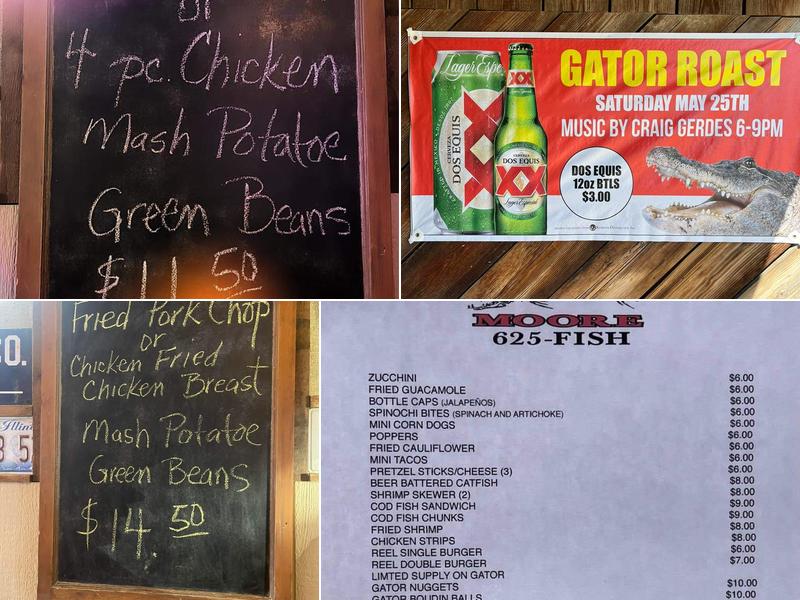 or
4 pc. Chicken
Mash Potatoe
Green Beans
$11 50
Lager Espe
CERVEZA
DOS EQUIS
XX
GATOR ROAST
SATURDAY MAY 25TH
MUSIC BY CRAIG GERDES 6-9PM
DOS EQUIS
12oz BTLS
$3.00
XX
CERVEZA
DOS EQUIS
XX
Lager Especial
CO.
Illin
3 5
Fried Pork Chop
or
Chicken Fried
Chicken Breast
Mash Potatoe
Green Beans
$14.50
MOORE
625-FISH
ZUCCHINI $6.00
FRIED GUACAMOLE $6.00
BOTTLE CAPS (JALAPEÑOS) $6.00
SPINOCHI BITES (SPINACH AND ARTICHOKE) $6.00
MINI CORN DOGS $6.00
POPPERS $6.00
FRIED CAULIFLOWER $6.00
MINI TACOS $6.00
PRETZEL STICKS/CHEESE (3) $6.00
BEER BATTERED CATFISH $8.00
SHRIMP SKEWER (2) $8.00
COD FISH SANDWICH $9.00
COD FISH CHUNKS $9.00
FRIED SHRIMP $8.00
CHICKEN STRIPS $8.00
REEL SINGLE BURGER $6.00
REEL DOUBLE BURGER $7.00
LIMTED SUPPLY ON GATOR
GATOR NUGGETS $10.00
GATOR BOUDIN BALLS $10.00